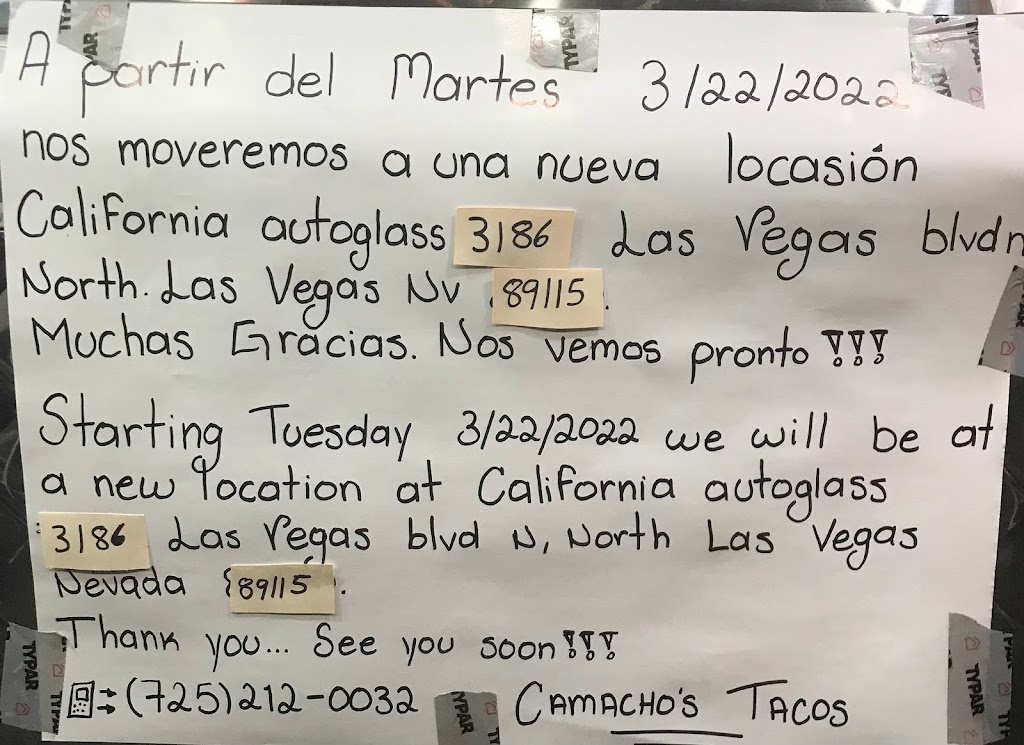 A partir del Martes 3/22/2022
nos moveremos a una nueva locasión
California autoglass 3186 Las Vegas blvdn
North. Las Vegas Nv 89115.
Muchas Gracias. Nos vemos pronto !!!
Starting Tuesday 3/22/2022 we will be at
a new location at California autoglass
3186 Las Vegas blvd N, North Las Vegas
Nevada 89115.
Thank you... See you soon!!!
(725)212-0032 CAMACHO'S TACOS
TYPAR
TYPAR
TYPAR
TYPAR